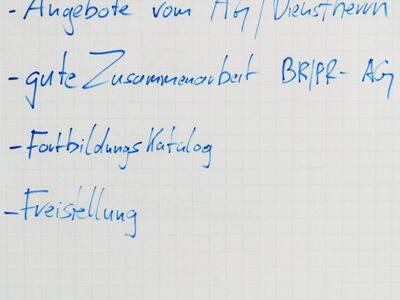 - Angebote vom AG/Dienstherrn
- gute Zusammenarbeit BR/PR- AG
- Fortbildungskatalog
- Freistellung